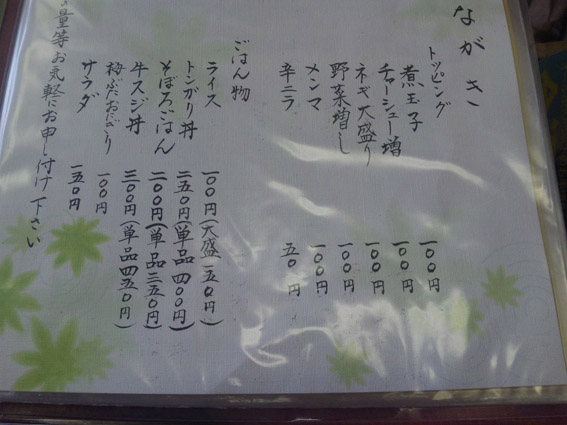 ながさき
トッピング
煮玉子 一〇〇円
チャーシュー増 一〇〇円
ネギ大盛り 一〇〇円
野菜増し 一〇〇円
メンマ 一〇〇円
辛ニラ 五〇円
ごはん物
ライス 一〇〇円(大盛一五〇円)
トンガリ丼 二五〇円(単品四〇〇円)
そぼろごはん 二〇〇円(単品三五〇円)
牛スジ丼 三〇〇円(単品四五〇円)
梅ぶたおにぎり 一〇〇円
サラダ 一五〇円
量等お気軽にお申し付け下さい